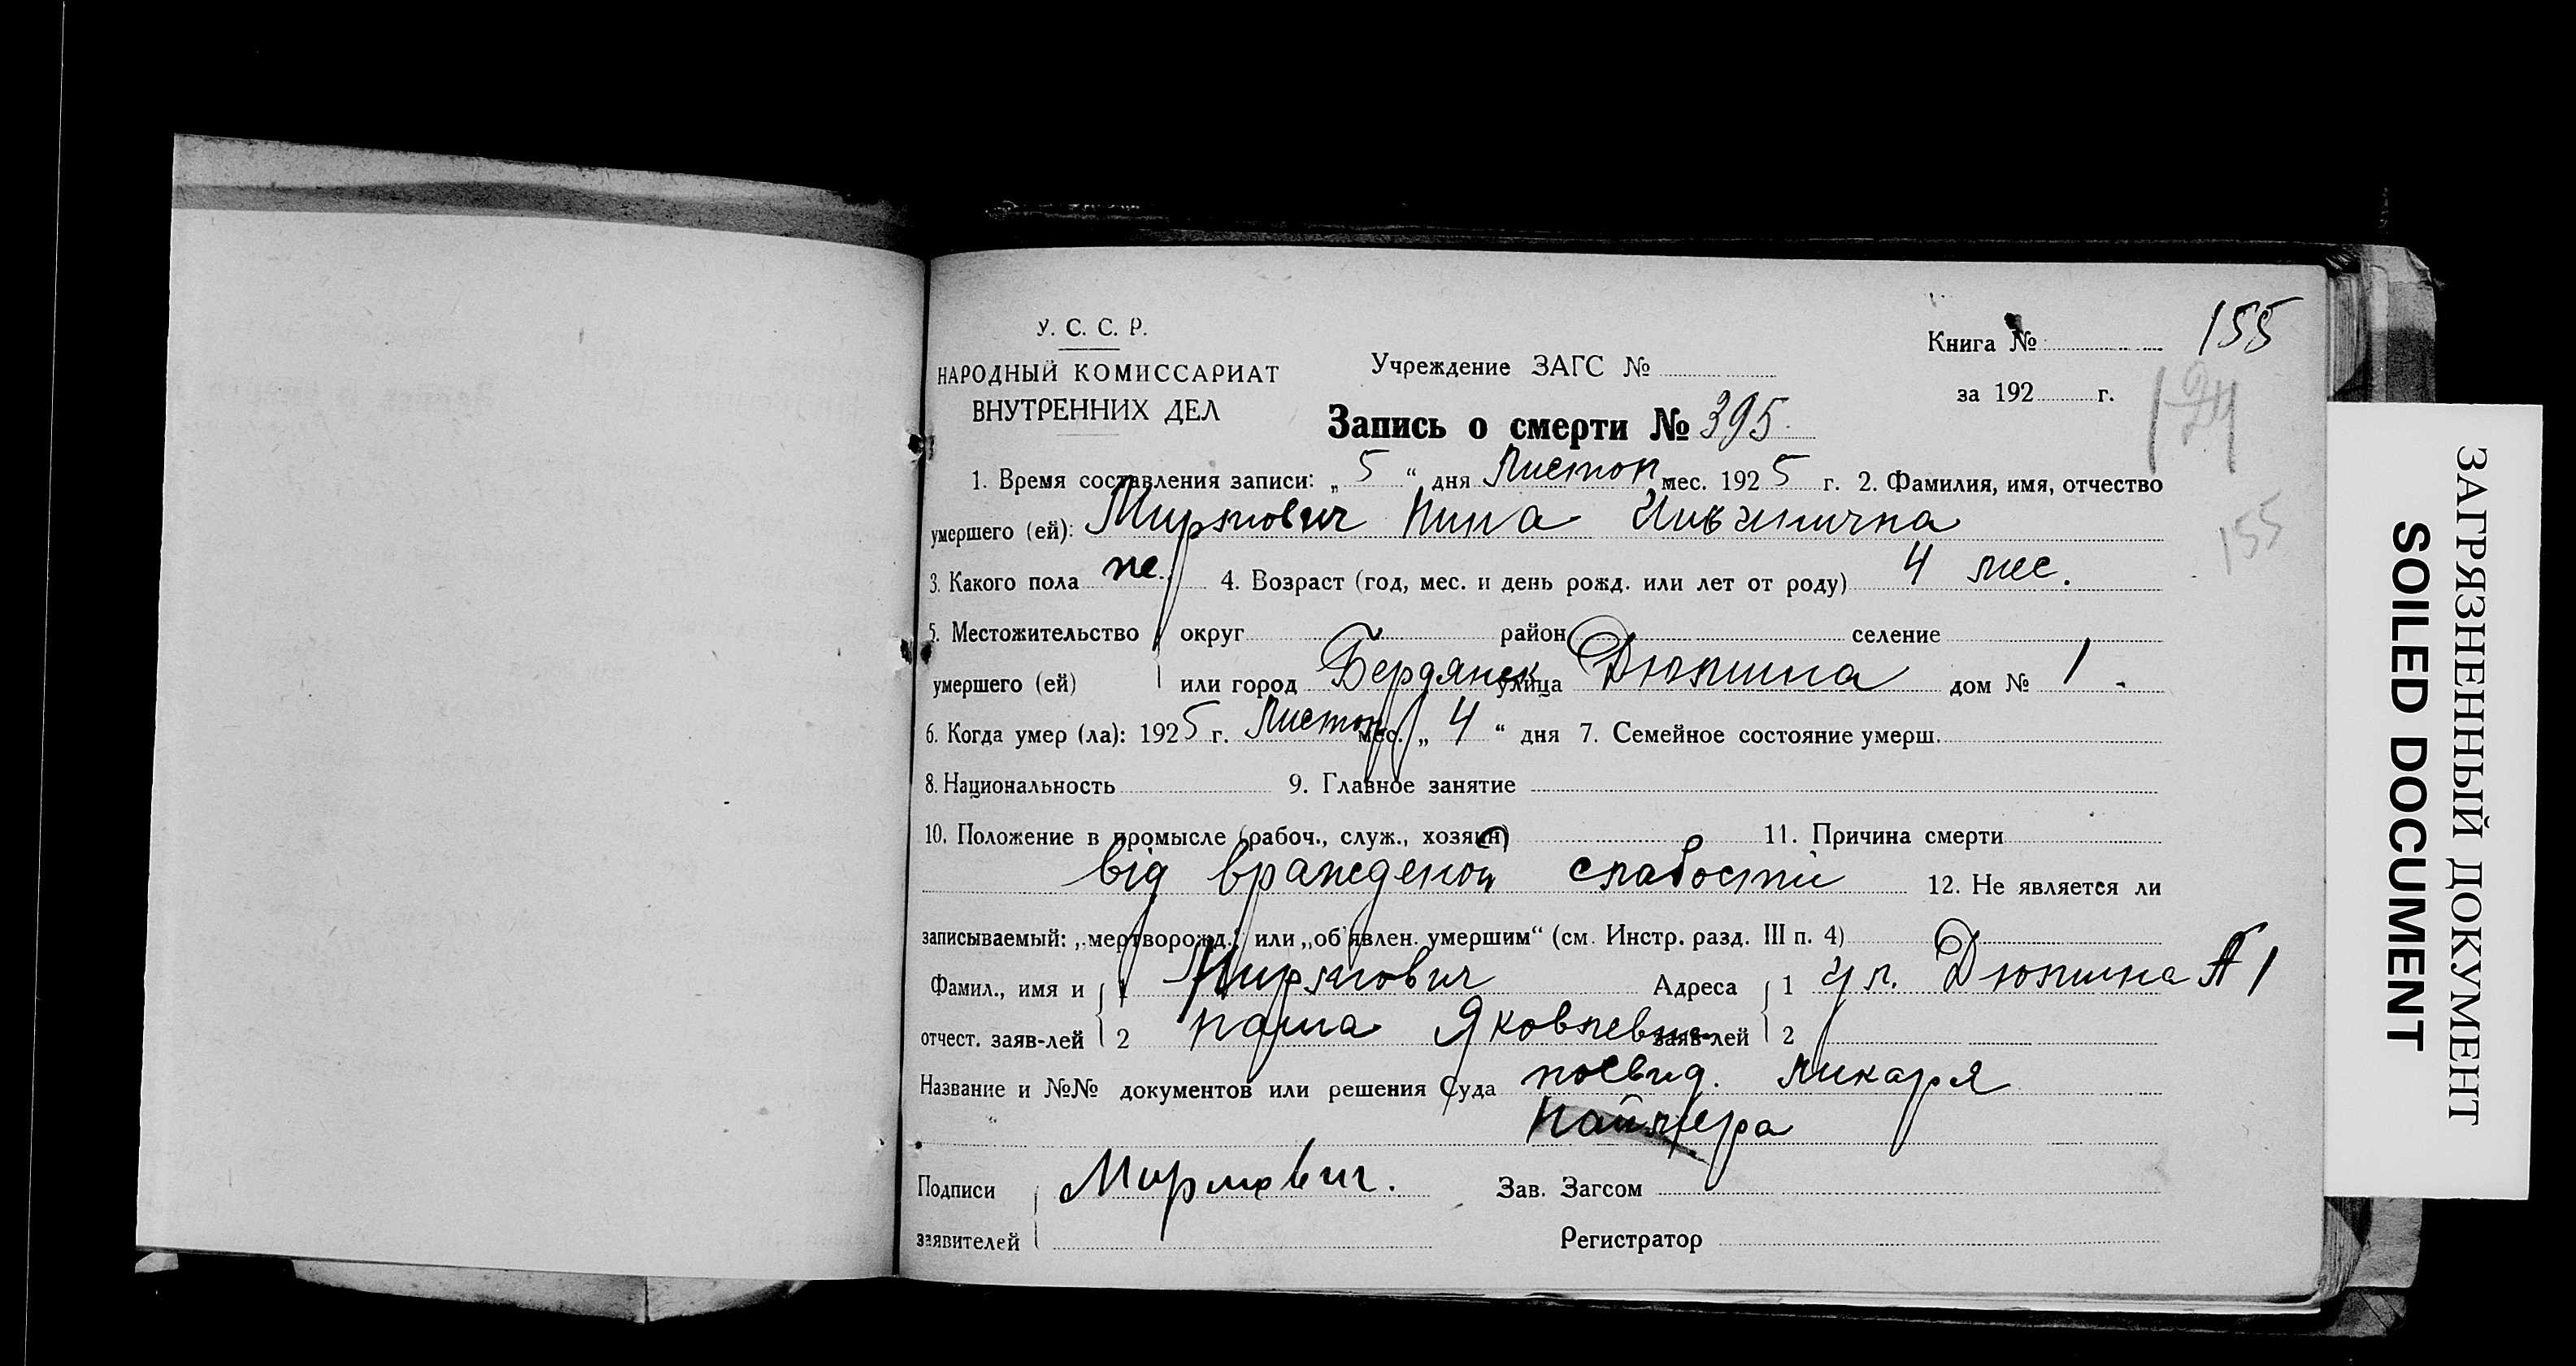 У. С. С. Р.
НАРОДНЫЙ КОМИССАРИАТ
ВНУТРЕННИХ ДЕЛ
Учреждение ЗАГС №
Книга № 155
за 192 г.
124
Запись о смерти № 395.
1. Время составления записи: „ 5 “ дня Листоп мес. 192 5 г. 2. Фамилия, имя, отчество
155
умершего (ей): Нина
3. Какого пола 4. Возраст (год, мес. и день рожд. или лет от роду) 4 мес.
5. Местожительство округ район селение
умершего (ей) или город Бердянск улица Дюмина дом № 1
6. Когда умер (ла): 192 5 г. Листоп мес. „ 4 “ дня 7. Семейное состояние умерш.
8. Национальность 9. Главное занятие
10. Положение в промысле (рабоч., служ., хозяин) 11. Причина смерти
від вражденой слабости 12. Не является ли
записываемый: „мертворожд.“ или „об'явлен. умершим“ (см. Инстр. разд. III п. 4)
Фамил., имя и 1 Адреса 1 ул. Дюмина № 1
отчест. заяв-лей 2 Яковлевич заяв-лей 2
Название и №№ документов или решения Суда посвид. ликаря
Подписи Зав. Загсом
заявителей Регистратор
ЗАГРЯЗНЕННЫЙ ДОКУМЕНТ
SOILED DOCUMENT